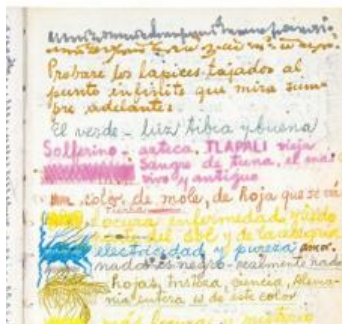 Probaré los lápices tajados al
punto infinito que mira siem-
pre adelante:
El verde - luz tibia y buena
Solferino - azteca. TLAPALI vieja
Sangre de tuna, el mas
vivo y antiguo
color de mole, de hoja que se va
Tierra
locura enfermedad miedo
parte del sol y de la alegria
electricidad y pureza amor.
nada es negro - realmente nada
Hojas, tristeza, ciencia, Alema-
nia entera es de este color
más locura y misterio